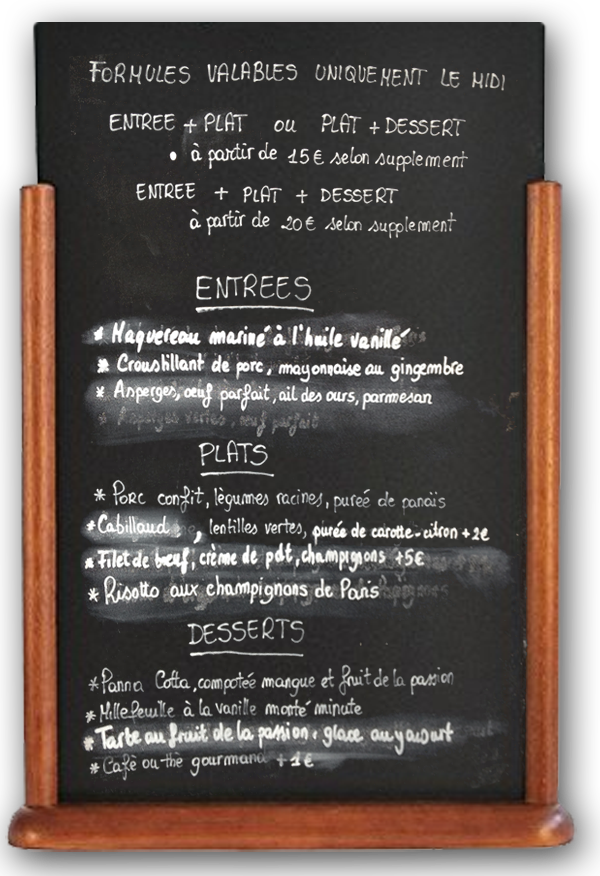 FORMULES VALABLES UNIQUEMENT LE MIDI
ENTREE + PLAT ou PLAT + DESSERT
• à partir de 15€ selon supplement
ENTREE + PLAT + DESSERT
à partir de 20€ selon supplement
ENTREES
* Maquereau mariné à l'huile vanillé
* Croustillant de porc, mayonnaise au gingembre
* Asperges, oeuf parfait, ail des ours, parmesan
* Asperges vertes, oeuf parfait
PLATS
* Porc confit, légumes racines, pureé de panais
* Cabillaud, lentilles vertes, purée de carotte-citron +2€
* Filet de bœuf, crème de pdt, champignons +5€
* Risotto aux champignons de Paris
DESSERTS
* Panna Cotta, compotée mangue et fruit de la passion
* Millefeuille à la vanille monté minute
* Tarte au fruit de la passion, glace au yaourt
* Café ou thé gourmand +1€